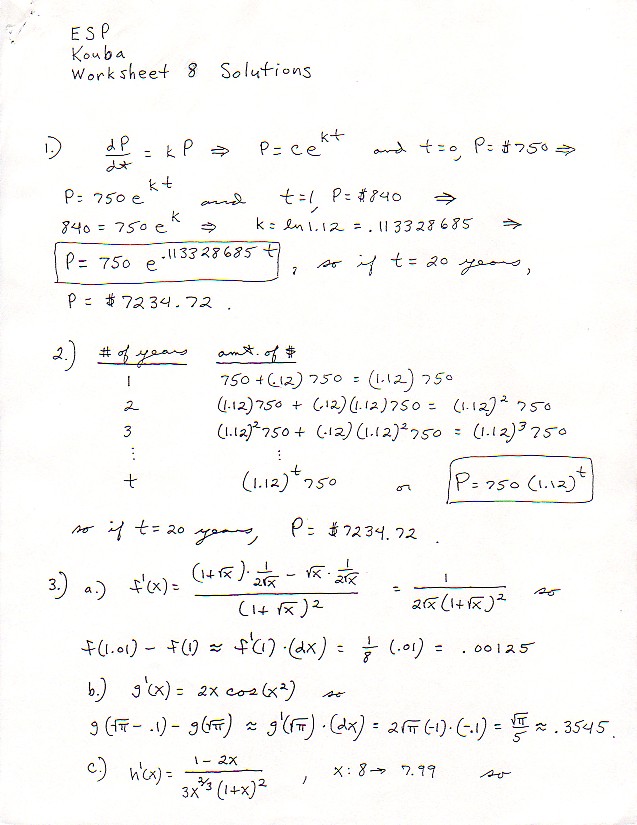 ESP
Kouba
Worksheet 8 Solutions
1.) dP/dt = kP ⇒ P = ce^{kt} and t=0, P=$750 ⇒
P= 750 e^{kt} and t=1, P=$840 ⇒
840 = 750 e^{k} ⇒ k= ln 1.12 = .113328685 ⇒
P= 750 e^{.113328685 t}, so if t = 20 years,
P = $7234.72 .
2.) # of years amt. of $
1 750 + (.12) 750 = (1.12) 750
2 (1.12)750 + (.12)(1.12)750 = (1.12)² 750
3 (1.12)²750 + (.12)(1.12)²750 = (1.12)³ 750
⋮ ⋮
t (1.12)^{t} 750 or P= 750 (1.12)^{t}
so if t = 20 years, P = $7234.72 .
3.) a.) f'(x) = ((1+√x)·1/(2√x) - √x·1/(2√x))/(1+√x)² = 1/(2√x(1+√x)²) so
f(1.01) - f(1) ≈ f'(1)·(dx) = 1/8 (.01) = .00125
b.) g'(x) = 2x cos(x²) so
g(√π - .1) - g(√π) ≈ g'(√π)·(dx) = 2√π(-1)·(-.1) = √π/5 ≈ .3545.
c.) h'(x) = (1-2x)/(3x^{2/3}(1+x)²), x: 8→ 7.99 so